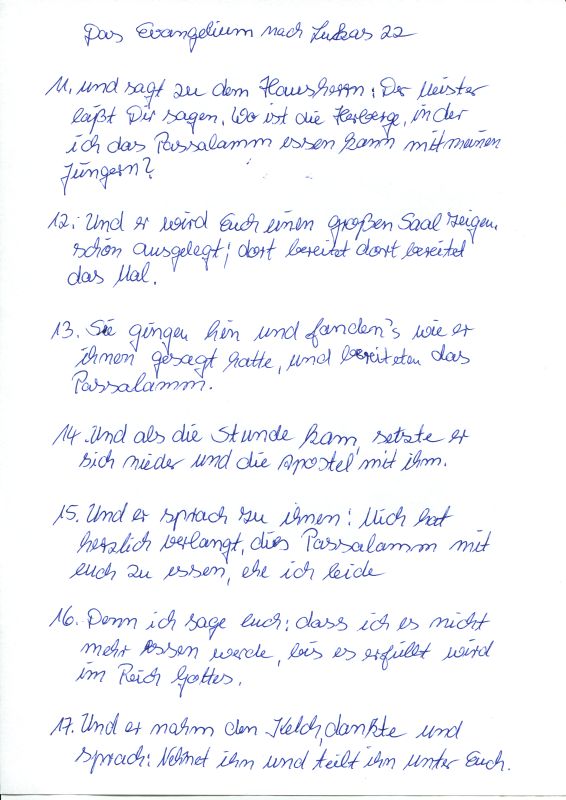 Das Evangelium nach Lukas 22
11. und sagt zu dem Hausherrn: Der Meister
läßt Dir sagen. Wo ist die Herberge, in der
ich das Passalamm essen kann mit meinen
Jüngern?
12. Und er wird Euch einen großen Saal zeigen.
schön ausgelegt; dort bereitet dort bereitet
das Mal.
13. Sie gingen hin und fanden's wie er
ihnen gesagt hatte, und bereiteten das
Passalamm.
14. Und als die Stunde kam, setzte er
sich nieder und die Apostel mit ihm.
15. Und er sprach zu ihnen: Mich hat
herzlich verlangt, dies Passalamm mit
euch zu essen, ehe ich leide
16. Denn ich sage euch: dass ich es nicht
mehr essen werde, bis es erfüllt wird
im Reich Gottes.
17. Und er nahm den Kelch, dankte und
sprach: Nehmet ihn und teilt ihn unter Euch.